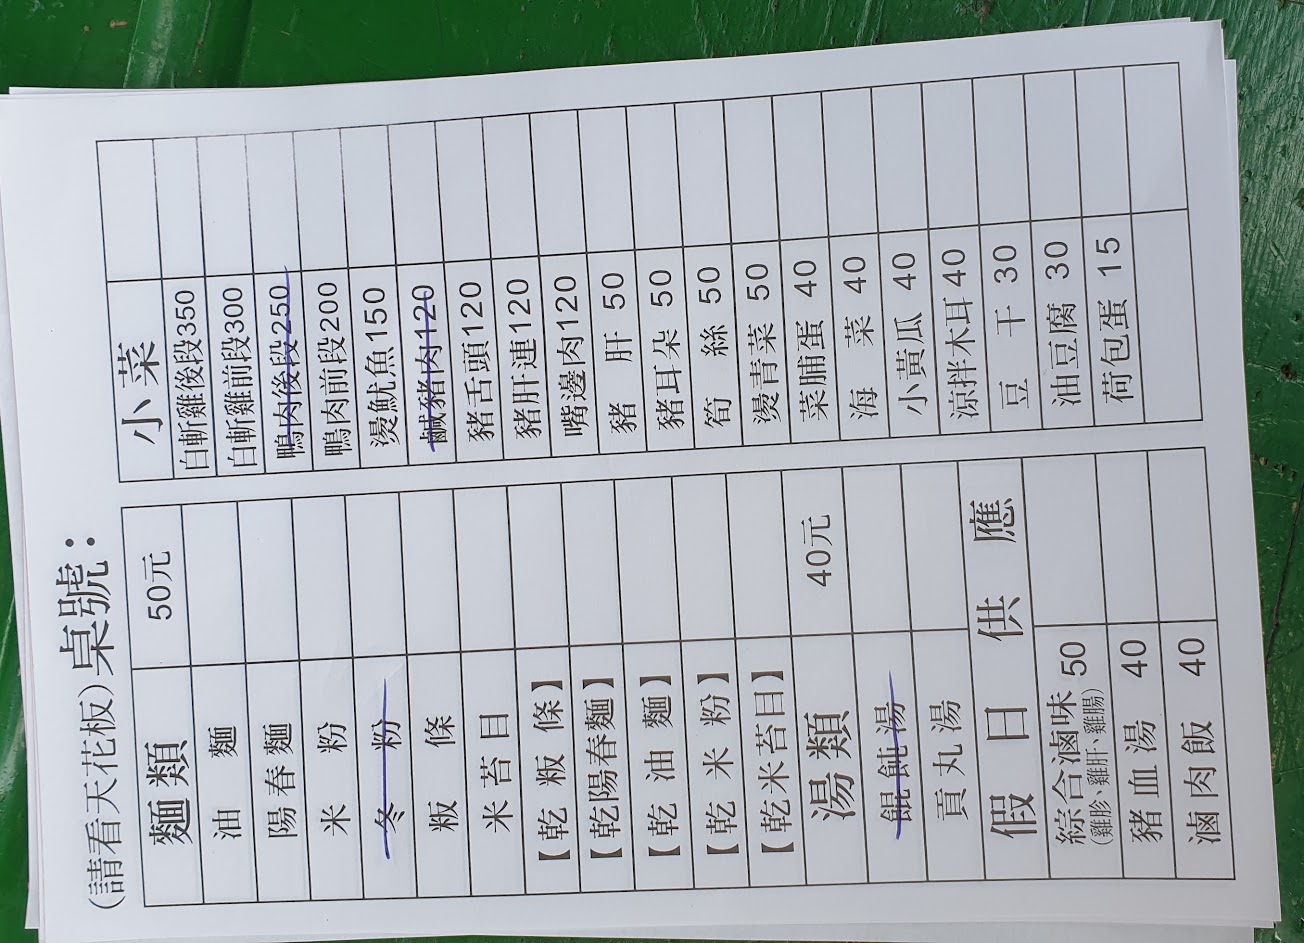 (請看天花板)桌號：
麵類 50元
油麵
陽春麵
米粉
冬粉
粄條
米苔目
【乾粄條】
【乾陽春麵】
【乾油麵】
【乾米粉】
【乾米苔目】
湯類 40元
餛飩湯
貢丸湯
假日供應
綜合滷味 50
(雞胗、雞肝、雞腸)
豬血湯 40
滷肉飯 40
小菜
白斬雞後段350
白斬雞前段300
鴨肉後段250
鴨肉前段200
燙魷魚150
鹹豬肉120
豬舌頭120
豬肝連120
嘴邊肉120
豬肝 50
豬耳朵 50
筍絲 50
燙青菜 50
菜脯蛋 40
海菜 40
小黃瓜 40
涼拌木耳 40
豆干 30
油豆腐 30
荷包蛋 15